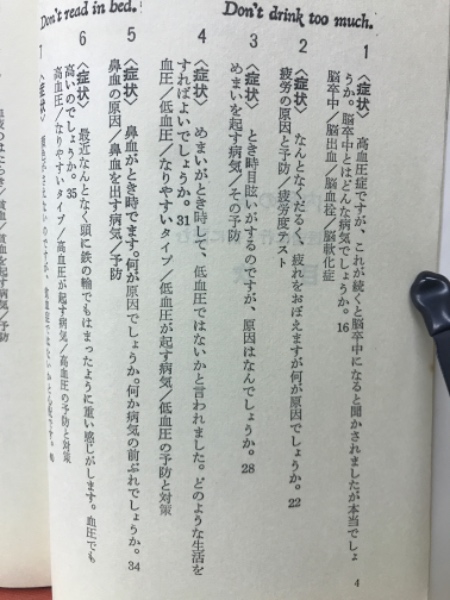 Don't read in bed.
Don't drink too much.
1
〈症状〉 高血圧症ですが、これが続くと脳卒中になると聞かされましたが本当でしょ
うか。脳卒中とはどんな病気でしょうか。16
脳卒中／脳出血／脳血栓／脳軟化症
2
〈症状〉 なんとなくだるく、疲れをおぼえますが何が原因でしょうか。22
疲労の原因と予防／疲労度テスト
3
〈症状〉 とき時目眩いがするのですが、原因はなんでしょうか。28
めまいを起す病気／その予防
4
〈症状〉 めまいがとき時して、低血圧ではないかと言われました。どのような生活を
すればよいでしょうか。31
血圧／低血圧／なりやすいタイプ／低血圧が起す病気／低血圧の予防と対策
5
〈症状〉 鼻血がとき時でます。何が原因でしょうか。何か病気の前ぶれでしょうか。34
鼻血の原因／鼻血を出す病気／予防
6
〈症状〉 最近なんとなく頭に鉄の輪でもはまったように重い感じがします。血圧でも
高いのでしょうか。35
高血圧／なりやすいタイプ／高血圧が起す病気／高血圧の予防と対策
7
〈症状〉
4